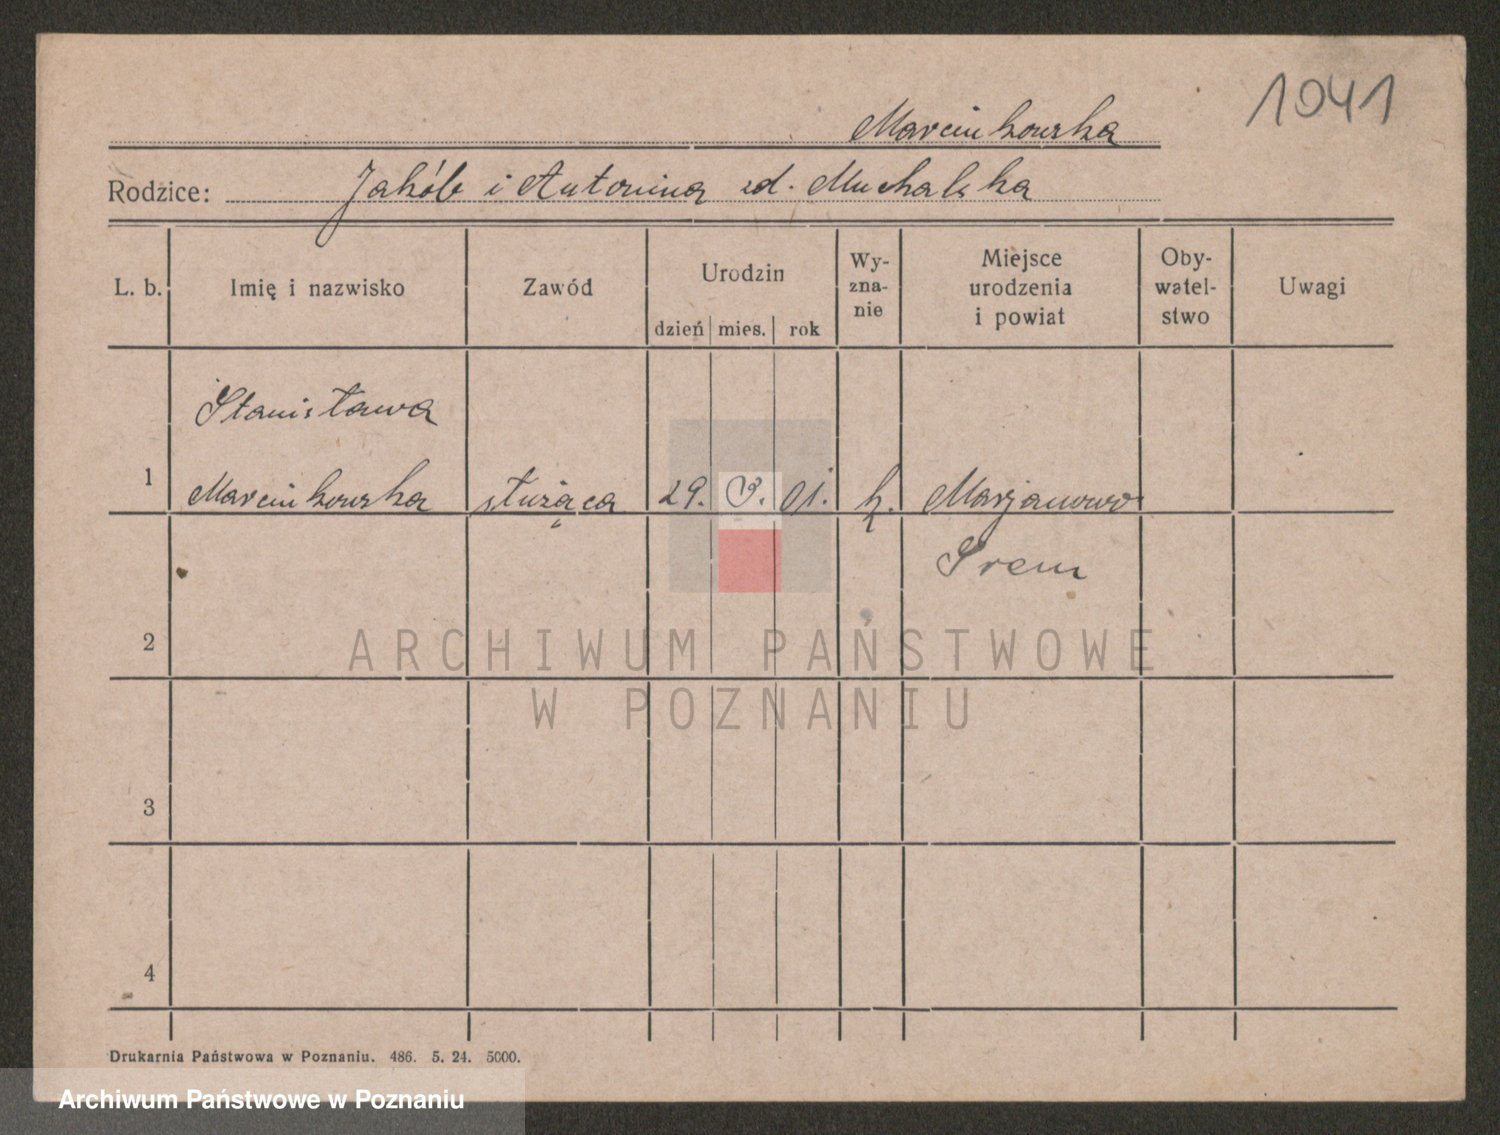 1041
Marcinkowska
Rodzice: Jakób i Antonina zd. Muchalska
L. b. Imię i nazwisko Zawód Urodzin dzień mies. rok Wy-zna-nie Miejsce urodzenia i powiat Oby-watel-stwo Uwagi
Stanisława
1 Marcinkowska służąca 29. 9. 01. k. Marjanowo
Śrem
2
ARCHIWUM PAŃSTWOWE
W POZNANIU
3
4
Drukarnia Państwowa w Poznaniu. 486. 5. 24. 5000.
Archiwum Państwowe w Poznaniu